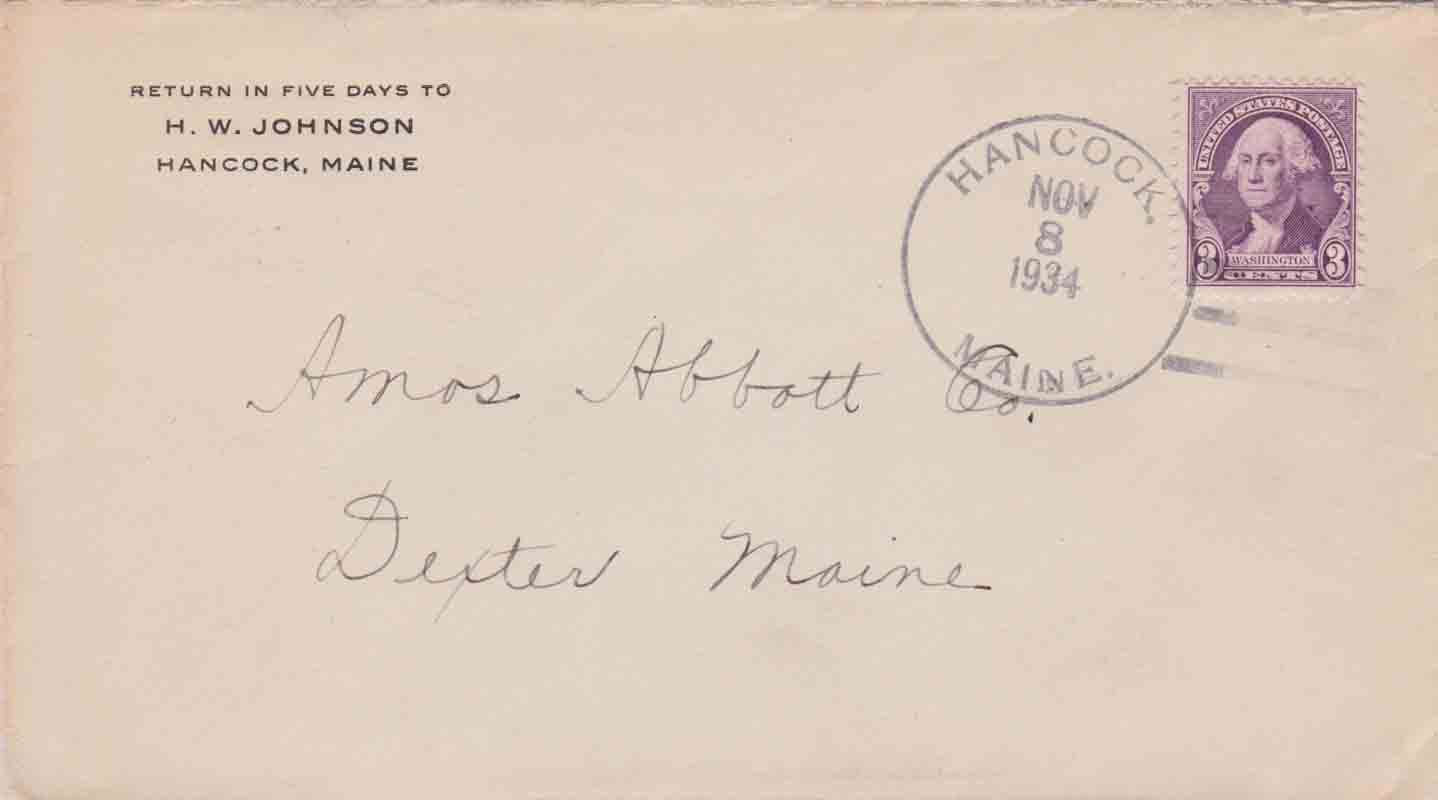 RETURN IN FIVE DAYS TO
H. W. JOHNSON
HANCOCK, MAINE
HANCOCK.
NOV
8
1934
MAINE.
UNITED STATES POSTAGE
3 WASHINGTON 3
CENTS
Amos Abbott Co.
Dexter Maine